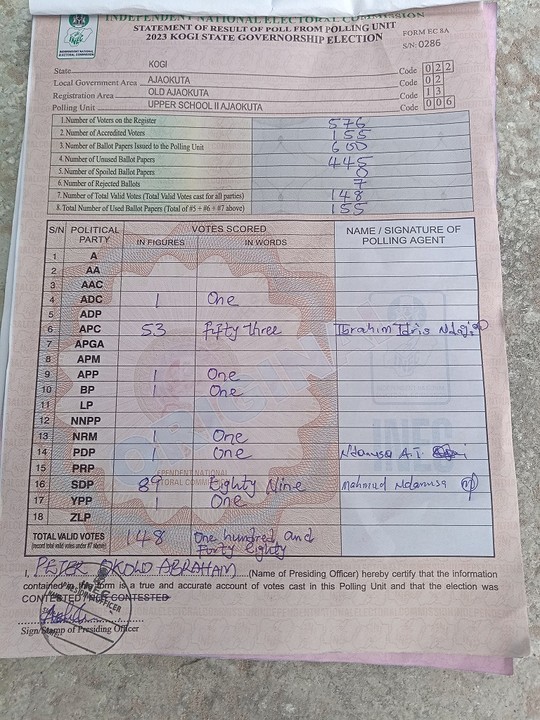 INDEPENDENT NATIONAL ELECTORAL COMMISSION
STATEMENT OF RESULT OF POLL FROM POLLING UNIT
2023 KOGI STATE GOVERNORSHIP ELECTION
FORM EC 8A
S/N: 0286
State KOGI Code 022
Local Government Area AJAOKUTA Code 02
Registration Area OLD AJAOKUTA Code 13
Polling Unit UPPER SCHOOL II AJAOKUTA Code 006
1.Number of Voters on the Register 576
2.Number of Accredited Voters 155
3.Number of Ballot Papers Issued to the Polling Unit 600
4.Number of Unused Ballot Papers 445
5.Number of Spoiled Ballot Papers 0
6.Number of Rejected Ballots 7
7.Number of Total Valid Votes (Total Valid Votes cast for all parties) 148
8.Total Number of Used Ballot Papers (Total of #5 + #6 + #7 above) 155
S/N POLITICAL PARTY VOTES SCORED NAME / SIGNATURE OF POLLING AGENT
IN FIGURES IN WORDS
1 A
2 AA
3 AAC
4 ADC 1 One
5 ADP
6 APC 53 Fifty three Ibrahim Idris
7 APGA
8 APM
9 APP 1 One
10 BP 1 One
11 LP
12 NNPP
13 NRM 1 One
14 PDP 1 One Ndamusa A.T
15 PRP
16 SDP 89 Eighty Nine Mahmud Ndamusa
17 YPP 1 One
18 ZLP
TOTAL VALID VOTES 148 One hundred and
(record total valid votes under #7 above) Forty eighty
I, PETER OKOLO ABRAHAM (Name of Presiding Officer) hereby certify that the information
contained in this form is a true and accurate account of votes cast in this Polling Unit and that the election was
CONTESTED / NOT CONTESTED
Sign/Stamp of Presiding Officer